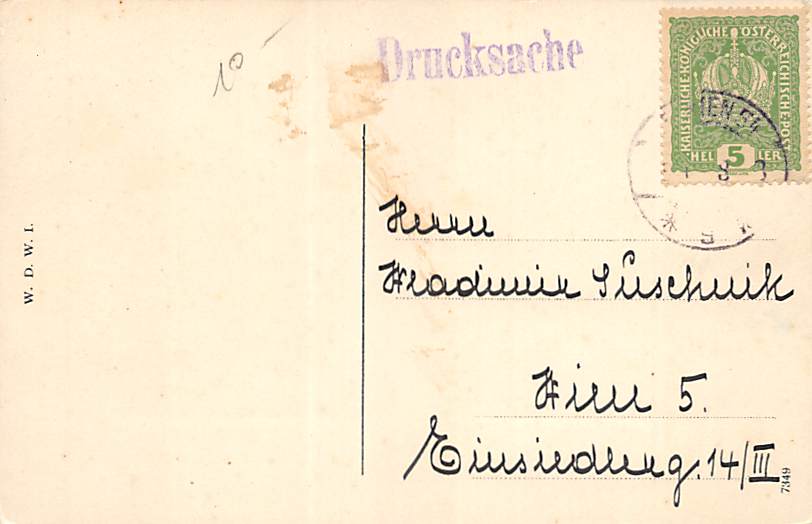 10
Drucksache
KAISERLICHE·KÖNIGLICHE·ÖSTERREICHISCHE·POST
HELLER
5
WIEN 54
Herrn
Wladimir Suschnik
Wien 5.
Einsiedlerg. 14/III
W. D. W. I.
7349